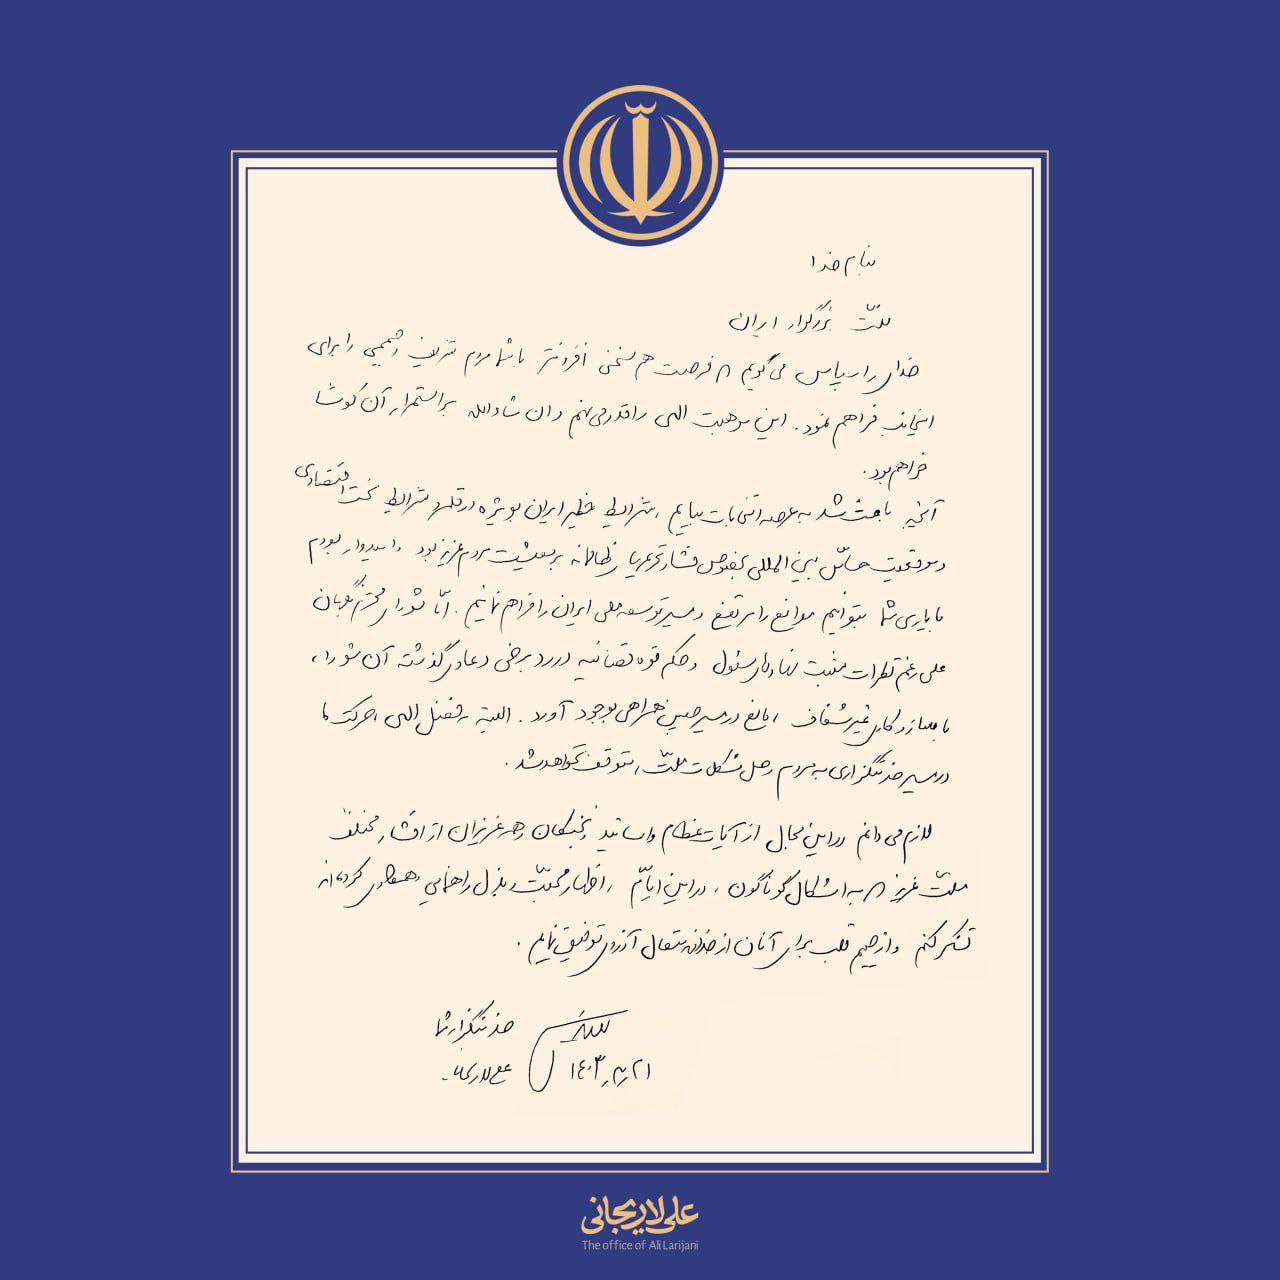 بنام خدا
ملّت بزرگوار ایران
خدای را سپاس می‌گویم که فرصت هم سخنی افزونتر با شما مردم شریف و صمیمی را برای
اینجانب فراهم نمود. این موهبت الهی را قدر می‌نهم و ان شاءالله بر استمرار آن کوشا
خواهم بود.
آنچه باعث شد به عرصه انتخابات بیایم، شرایط خطیر ایران بویژه در قلمرو شرایط سخت اقتصادی
و موقعیت حسّاس بین المللی بخصوص فشار تحریمهای ظالمانه بر معیشت مردم عزیز بود و امیدوار بودم
با یاری شما بتوانیم موانع را مرتفع و مسیر توسعه ملی ایران را فراهم نمائیم. امّا شورای محترم نگهبان
علی رغم نظرات مثبت نهادهای مسئول و حکم قوه قضائیه در رد برخی دعاوی گذشته آن شورا،
با سازوکاری غیر شفاف، مانع در مسیر چنین همراهی بوجود آورد. البته به فضل الهی، حرکت ما
در مسیر خدمتگزاری به مردم و حل مشکلات ملّت، متوقف نخواهد شد.
لازم می دانم در این مجال از آیات عظام و اساتید و نخبگان و همه عزیزان از اقشار مختلف
ملّت عزیز که به اشکال گوناگون، در این ایّام، اظهار محبّت و بذل راهنمایی و همکاری کرده‌اند
تشکر کنم و از صمیم قلب برای آنان از خداوند متعال آرزوی توفیق نمایم.
خدمتگزار شما
علی لاریجانی
۱۴۰۳٫۳٫۲۱
علی لاریجانی
The office of Ali Larijani